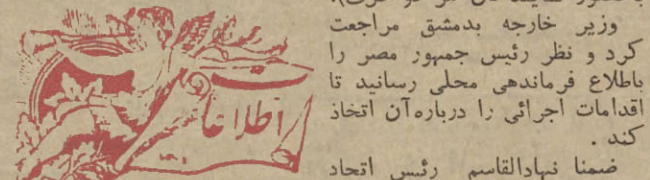 وزیر خارجه بدمشق مراجعت
کرد و نظر رئیس جمهور مصر را
باطلاع فرماندهی محلی رسانید تا
اقدامات اجرائی را درباره آن اتخاذ
کند .
ضمنا نهادالقاسم رئیس اتحاد
اطلاعات